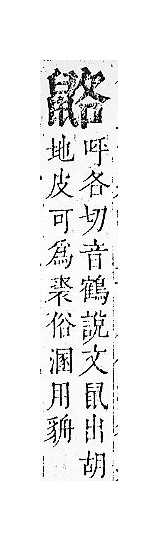 鼦
呼各切音鶴說文鼠出胡
地皮可爲裘俗溷用貈